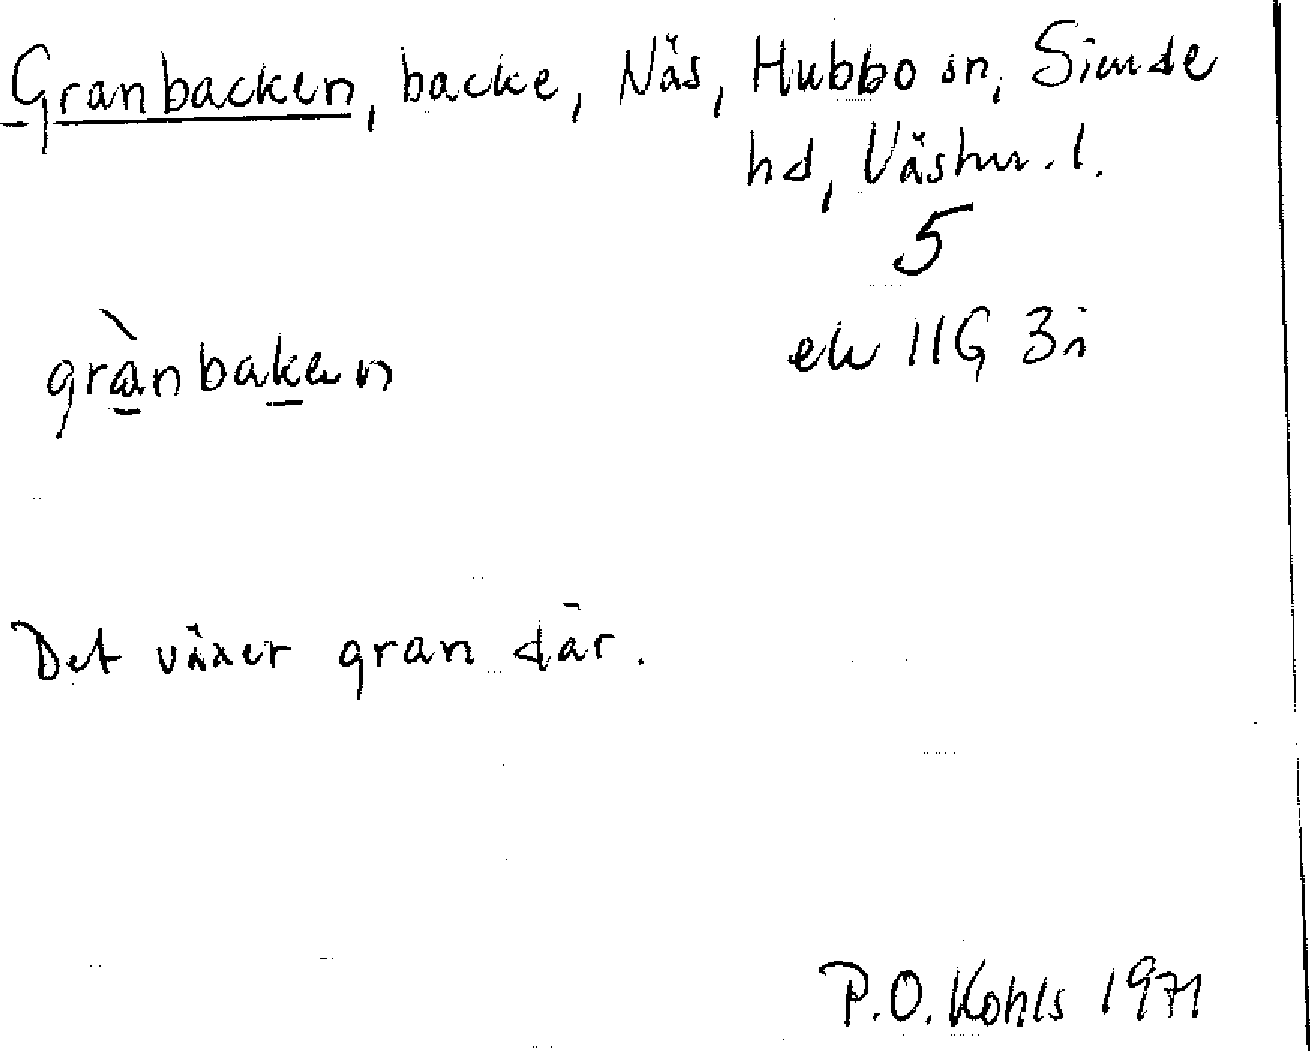 Granbacken, backe, Näs, Hubbo sn, Siende
hd, Västm. l.
5
ek 11G 3i
grànbaken
Det växer gran där.
P.O. Kohls 1971